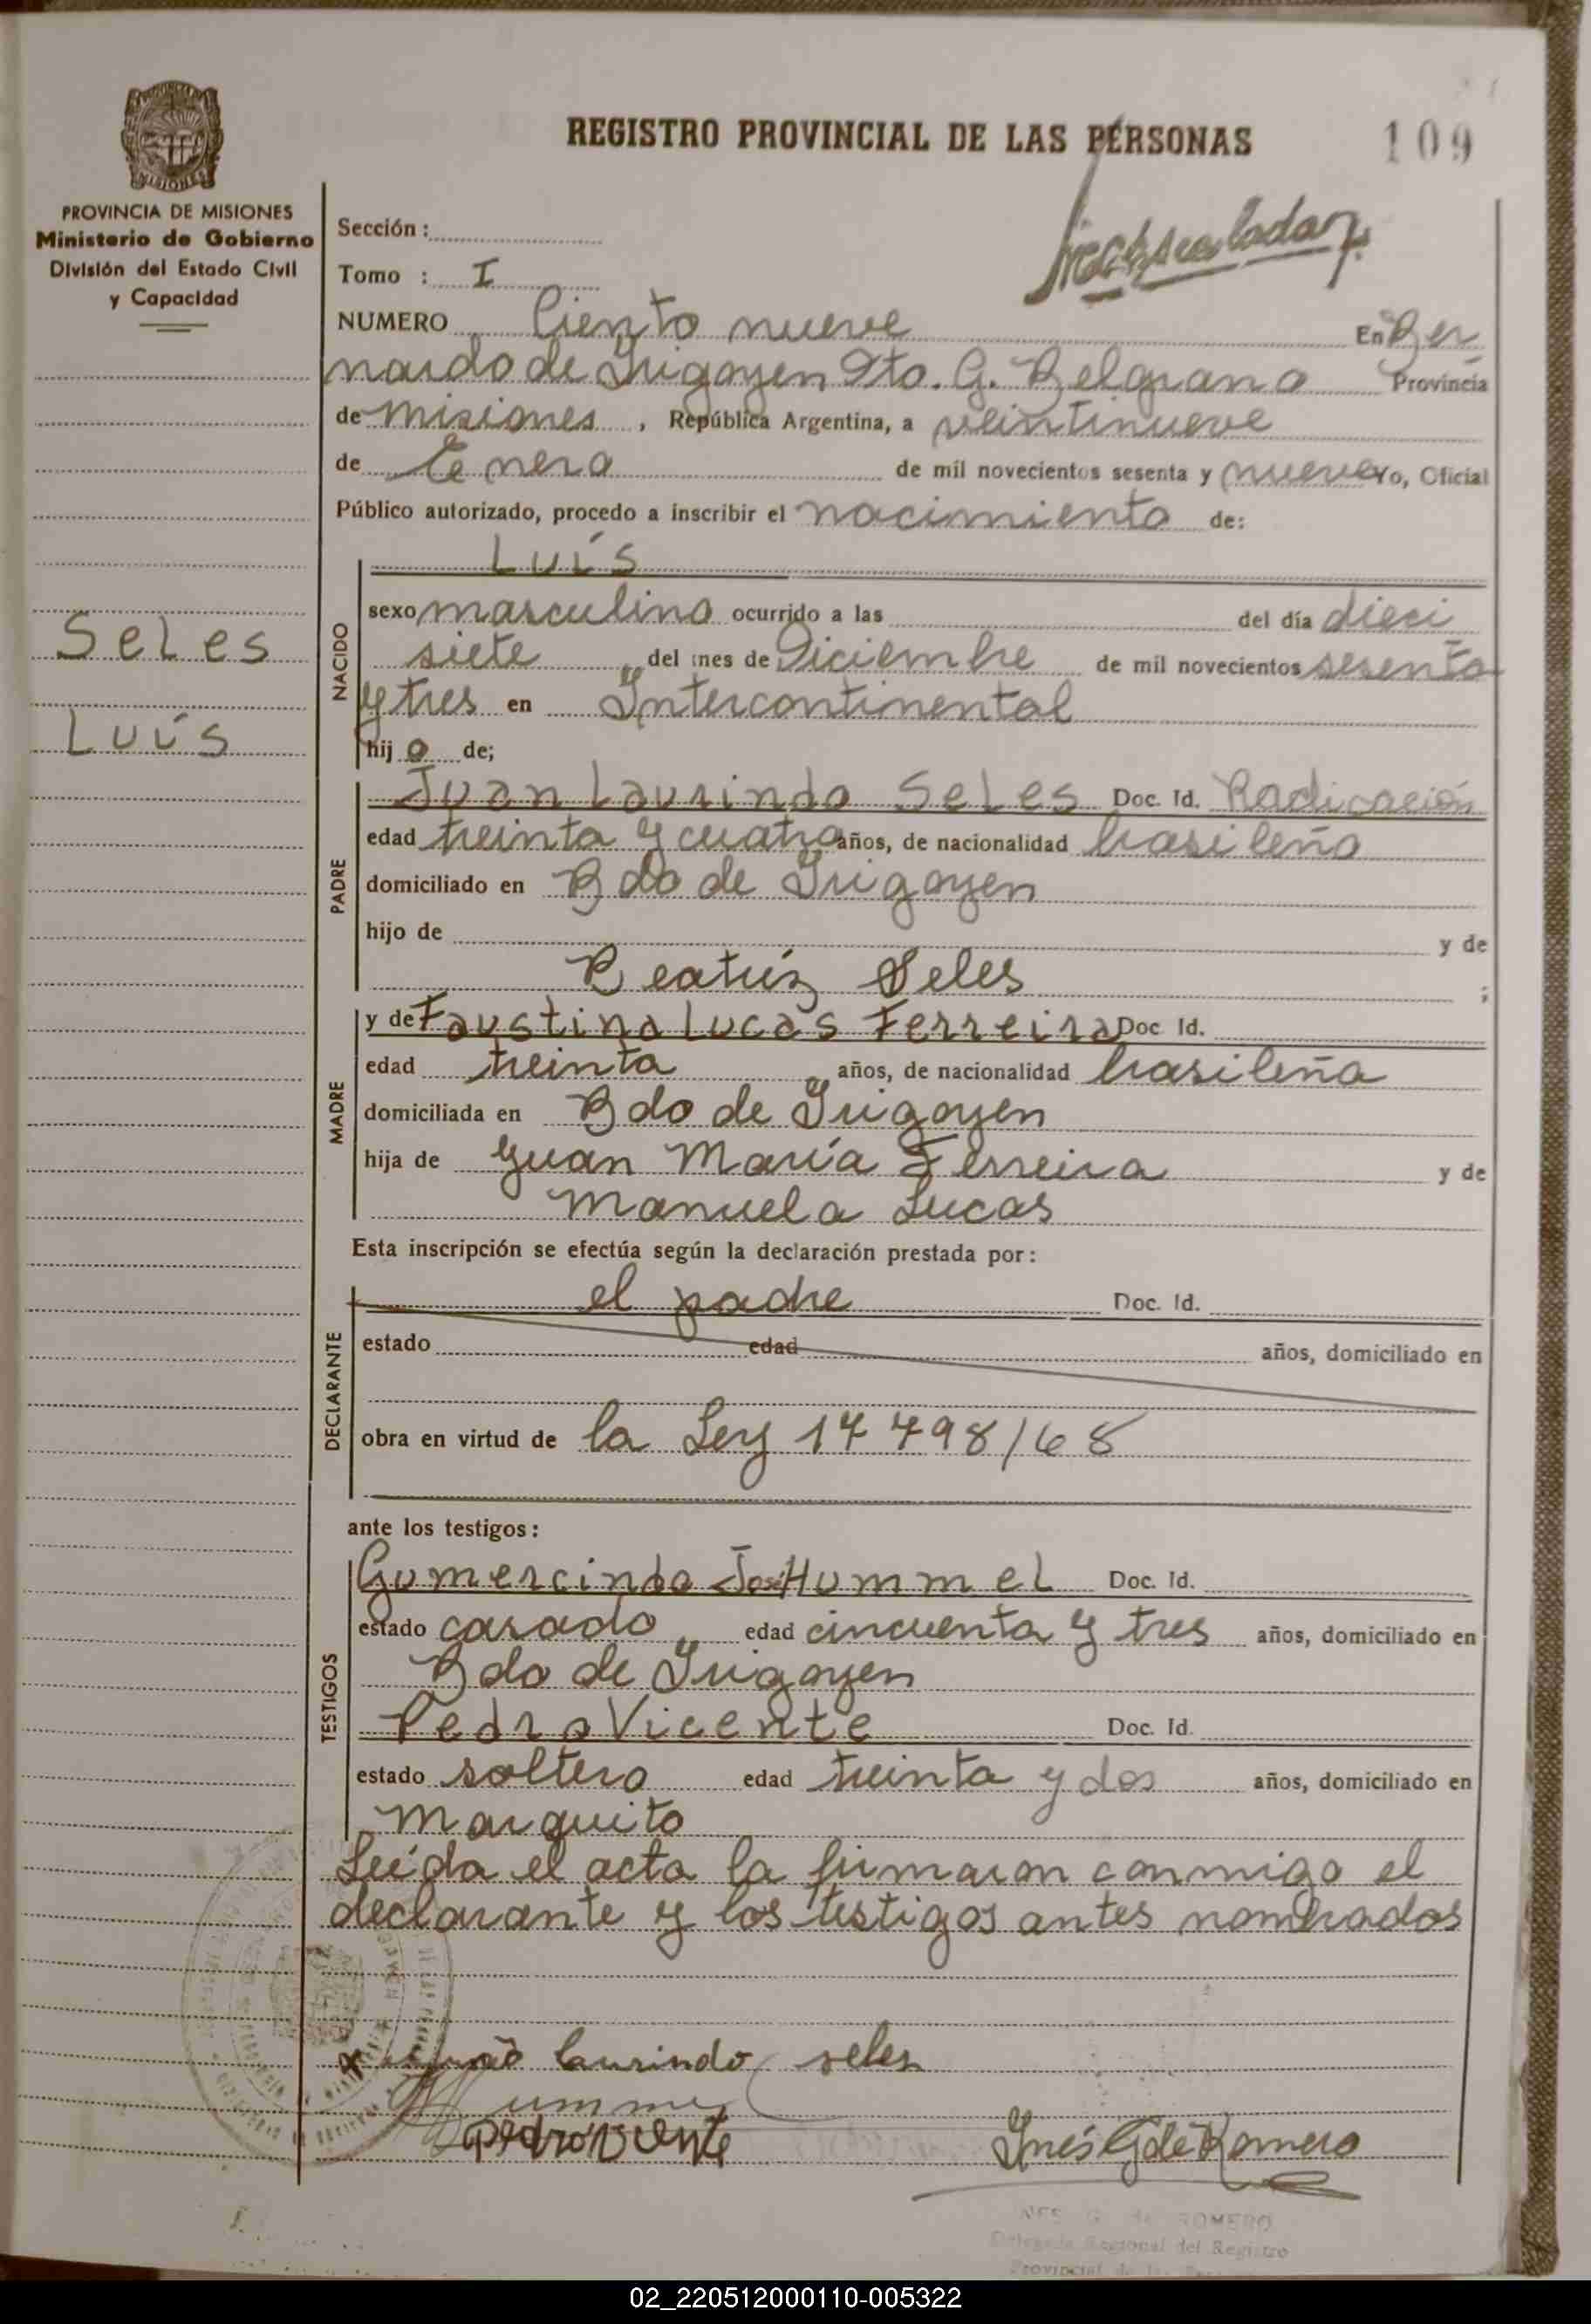 REGISTRO PROVINCIAL DE LAS PERSONAS
109
MISIONES
PROVINCIA DE MISIONES
Ministerio de Gobierno
División del Estado Civil
y Capacidad
Seles
Luís
Sección :
Tomo : I
NUMERO Ciento nueve En Ber
nardo de Irigoyen Dto. G. Belgrano Provincia
de Misiones , República Argentina, a veintinueve
de Enero de mil novecientos sesenta y nueve Yo, Oficial
Público autorizado, procedo a inscribir el nacimiento de:
NACIDO
Luís
sexo masculino ocurrido a las del día dieci
siete del mes de Diciembre de mil novecientos sesenta
y tres en Intercontinental
hijo de;
PADRE
Juan Laurindo Seles Doc. Id. Radicación
edad treinta y cuatro años, de nacionalidad brasileño
domiciliado en Bdo de Irigoyen
hijo de y de
Beatríz Seles ;
MADRE
y de Faustina Lucas Ferreira Doc Id.
edad treinta años, de nacionalidad brasileña
domiciliada en Bdo de Irigoyen
hija de Juan María Ferreira y de
Manuela Lucas
Esta inscripción se efectúa según la declaración prestada por :
DECLARANTE
el padre Doc. Id.
estado edad años, domiciliado en
obra en virtud de la Ley 17798/68
ante los testigos :
TESTIGOS
Gumercindo José Hummel Doc. Id.
estado casado edad cincuenta y tres años, domiciliado en
Bdo de Irigoyen
Pedro Vicente Doc. Id.
estado soltero edad treinta y dos años, domiciliado en
Marquito
Leída el acta la firmaron conmigo el
declarante y los testigos antes nombrados
laurindo seles
Pedro Vicente
Inés G de Romero
G. de ROMERO
Regional del Registro
Provincial de las
02_220512000110-005322